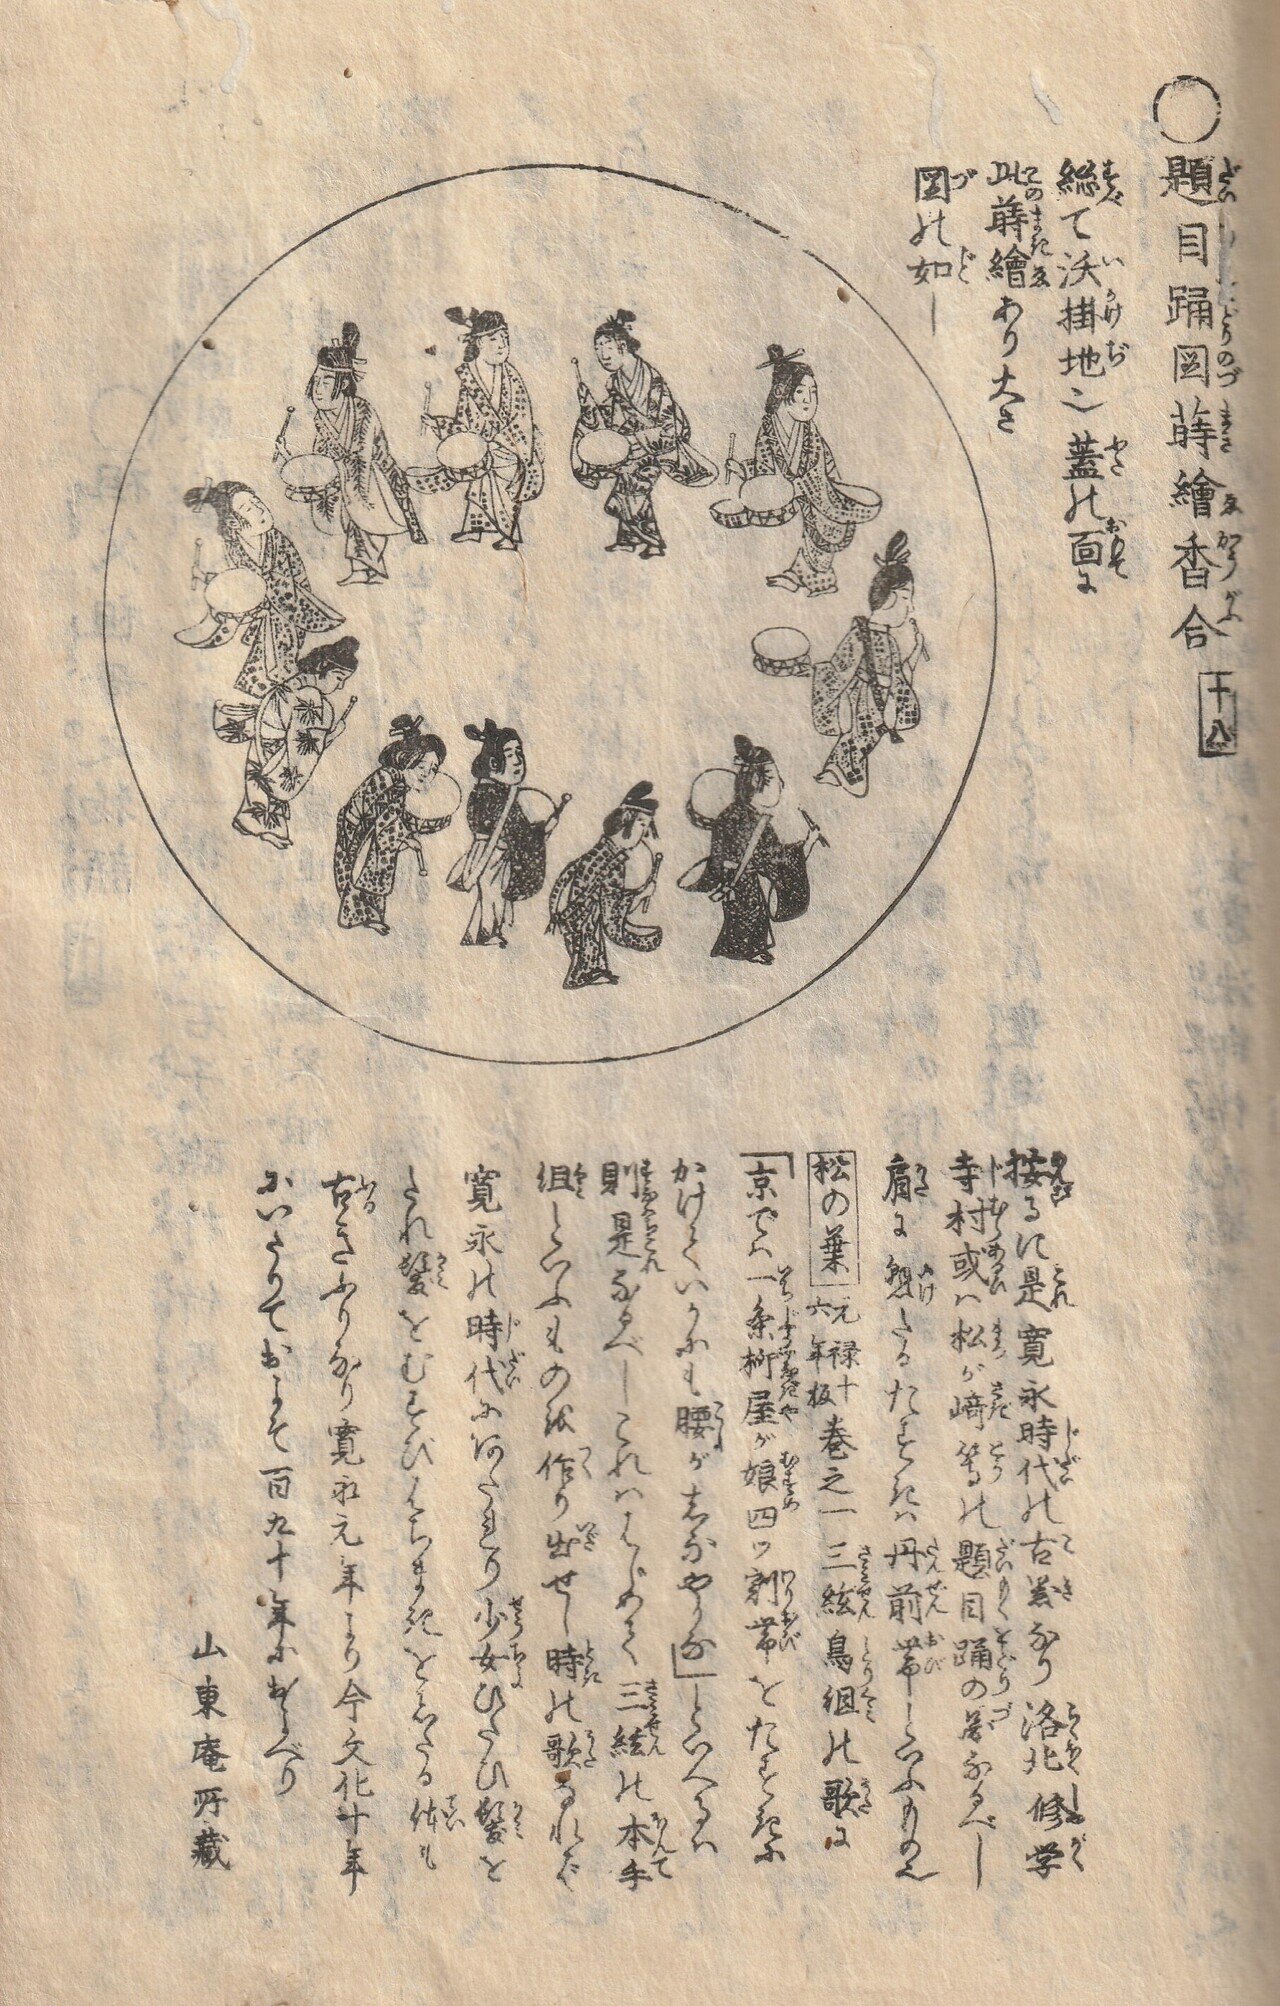 ○題目踊図蒔繪香合 十八
総て沃掛地也蓋の面に
此蒔繪あり大さ
図の如し
按るに是寛永時代の古器なり洛北修学
寺村或は松が﨑等の題目踊の図なるべし
肩に懸たるたすきは丹前帯といふもの也
松の葉 元禄十六年板 巻之一三絃鳥組の歌に
「京では一条柳屋が娘四ツ割帯をたすきに
かけていかにも腰がしなやかな」といへるは
則是なるべしこれははじめて三絃の本手
組といふものを作り出せし時の歌なれば
寛永の時代にあたれり少女ひたひ髪を
たれ髪をむすびはちまきをしたる体も
古きふりなり寛永元年より今文化十年
にいたりておよそ百九十年におよべり
山東庵所藏